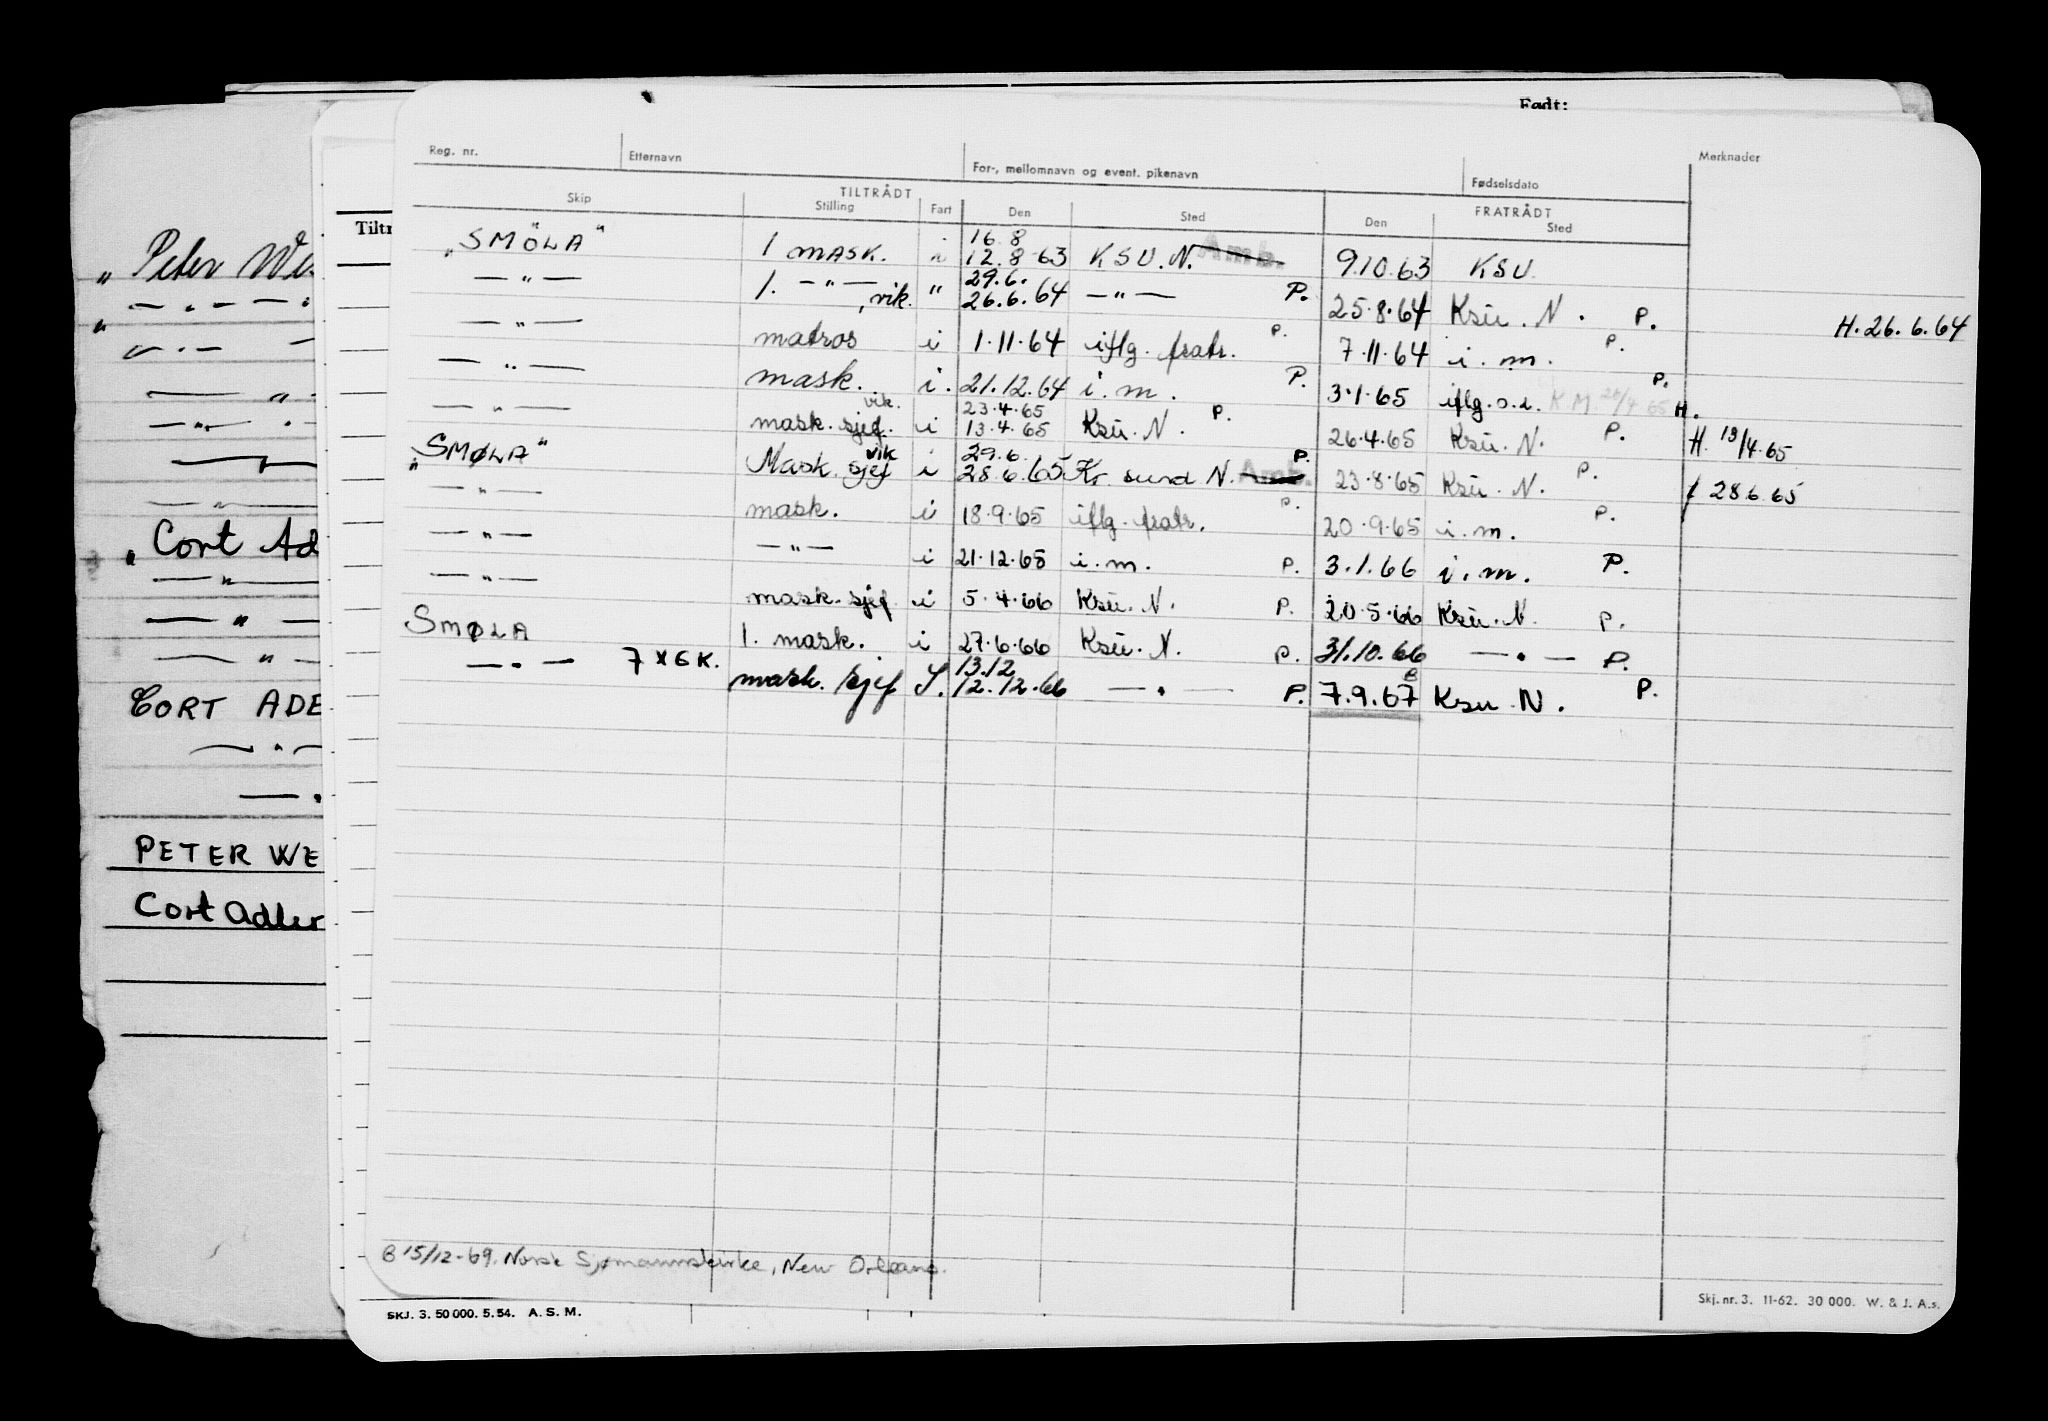 Født:
Reg. nr. Etternavn For-, mellomnavn og event. pikenavn Fødselsdato Merknader
TILTRÅDT FRATRÅDT
Skip Stilling Fart Den Sted Den Sted
16.8
„SMÖLA" 1 MASK. i 12.8.63 KSU.N. Amb. 9.10.63 KSU.
29.6.
—"— 1. —"—, vik. " 26.6.64 —"— P. 25.8.64 Ksu. N. P. H. 26.6.64
—"— matros i 1.11.64 iflg. fratr. P. 7.11.64 i.m. P.
—"— mask. i. 21.12.64 i.m. P. 3.1.65 iflg. o.l. K.M. 26/4 65 P. H.
vik. 23.4.65
—"— mask.sjef. i 13.4.65 Ksu. N. P. 26.4.65 Ksu. N. P. H. 13/4.65
vik 29.6.
„SMØLA" Mask.sjef i 28.6.65 Kr. sund N. Amb. P. 23.8.65 Ksu. N. P. 28.6.65
—"— mask. i 18.9.65 iflg. fratr. P. 20.9.65 i.m. P.
—"— —"— i 21.12.65 i.m. P. 3.1.66 i.m. P.
—"— mask.sjef i 5.4.66 Ksu. N. P. 20.5.66 Ksu. N. P.
SMØLA 1. mask. i 27.6.66 Ksu. N. P. 31.10.66 —"— P.
13.12
—"— 7 X 6 K. mask. sjef S. 12.12.66 —"— P. 7.9.67 B Ksu. N. P.
B 15/12-69. Norsk Sjømannskirke, New Orleans.
Skj. nr. 3. 11-62. 30 000. W. & J. A.s.
SKJ. 3. 50 000. 5. 54. A. S. M.
Tiltr
„Peter We
—"—
„
—"—
—"—
—"—
—"—
„Cort Ad
—"—
—"—
—"—
CORT ADE
—"—
—"
PETER WE
Cort Adler